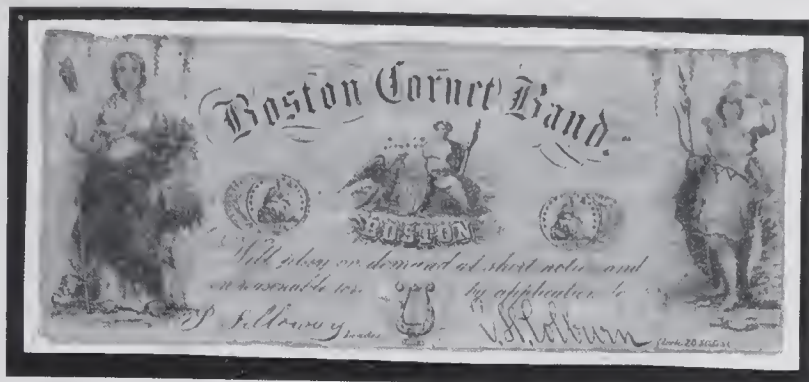 Boston Cornet Band.
BOSTON
Will play on demand at short notice and
on reasonable by application to
Leader
Clerk 20